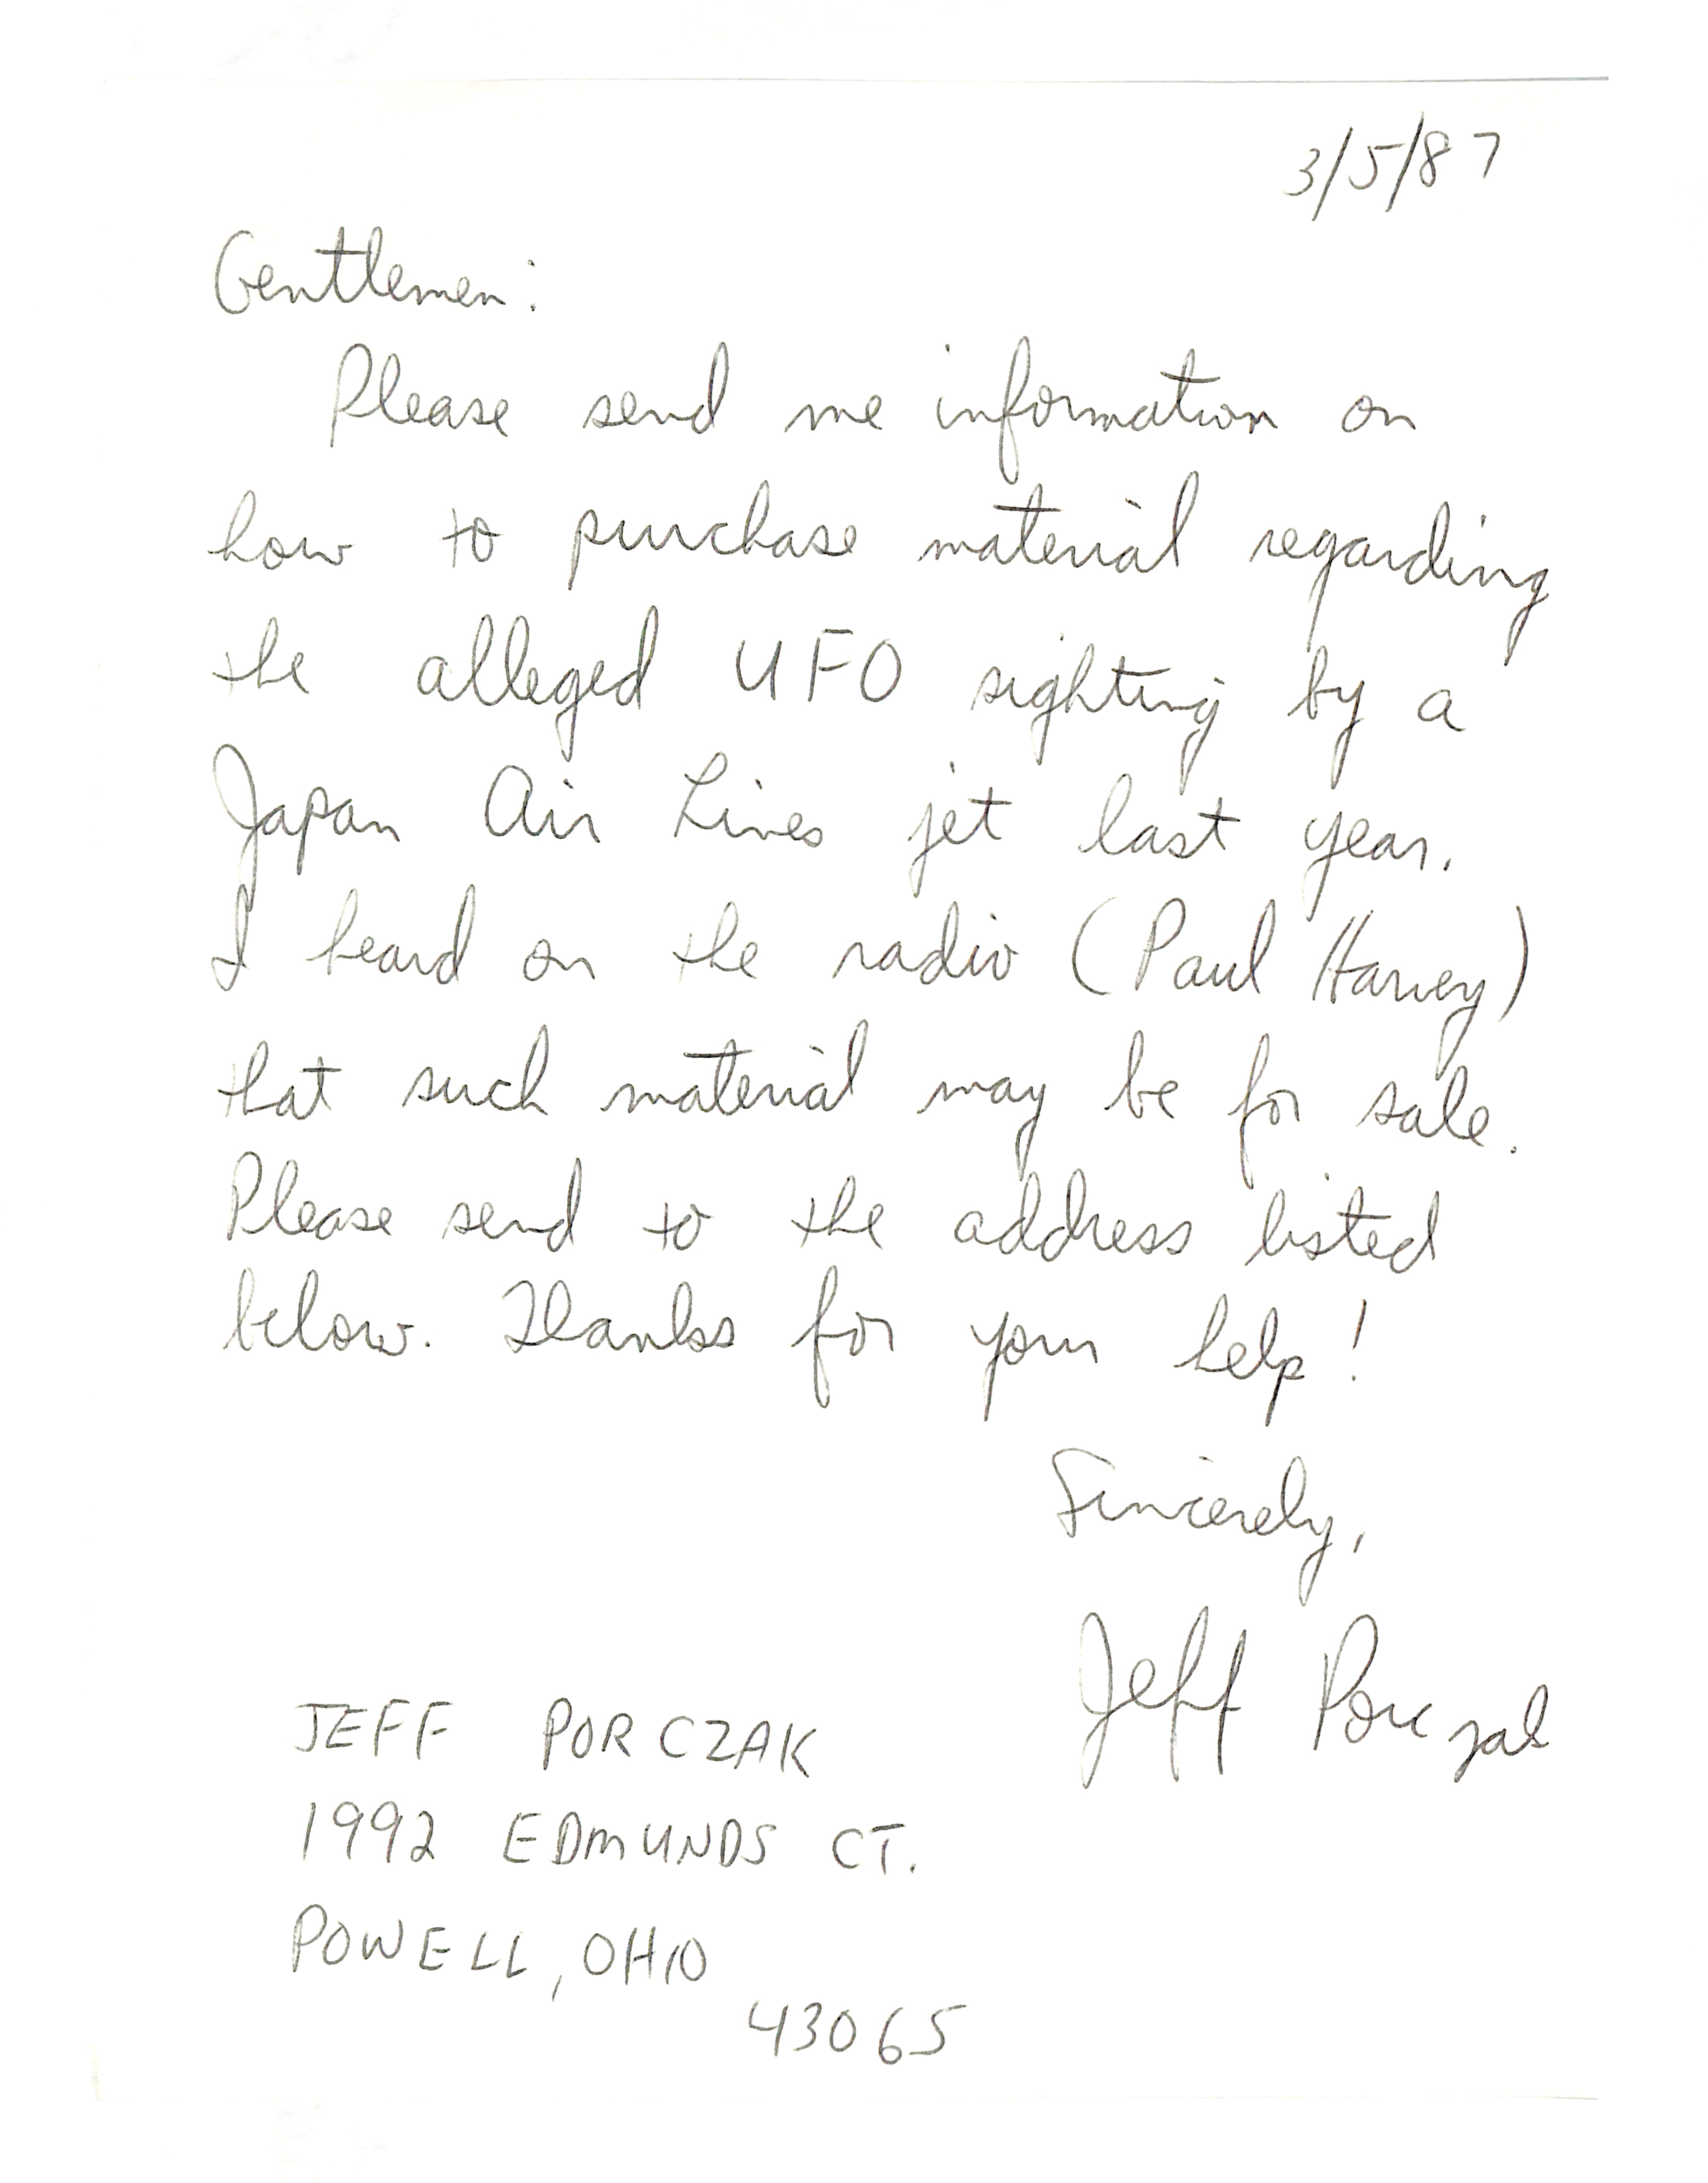 3/5/87
Gentlemen:
Please send me information on
how to purchase material regarding
the alleged UFO sighting by a
Japan Air Lines jet last year.
I heard on the radio (Paul Harvey)
that such material may be for sale.
Please send to the address listed
below. Thanks for your help!
Sincerely,
Jeff Porczak
JEFF PORCZAK
1992 EDMUNDS CT.
POWELL, OHIO
43065